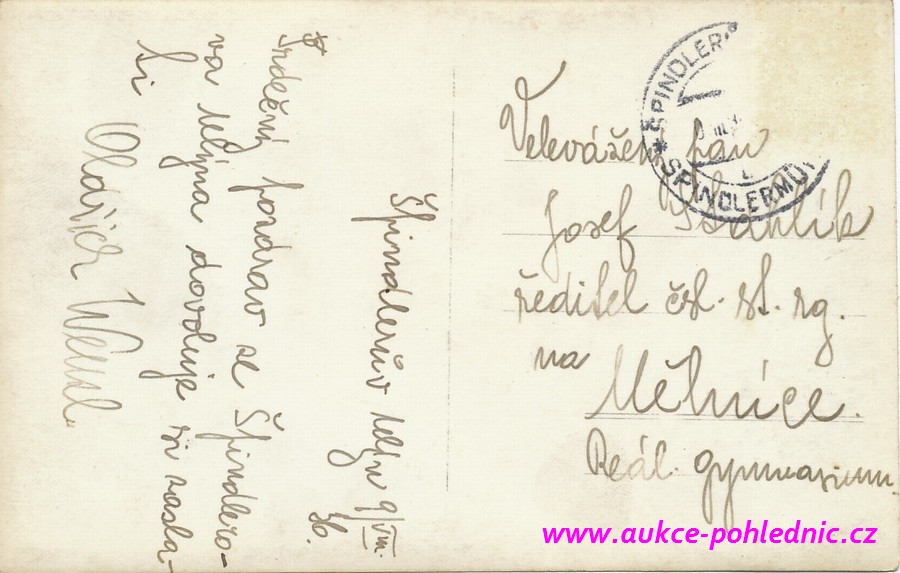 Špindlerův Mlýn 9/VIII.
36.
Srdečný pozdrav ze Špindlero-
va Mlýna dovoluje si zasla-
ti
Oldřich
SPINDLER
* SPINDLERMÜ
Velevážený pan
Josef
ředitel čsl. st. rg.
na
Mělníce.
Reál. gymnasium.
www.aukce-pohlednic.cz